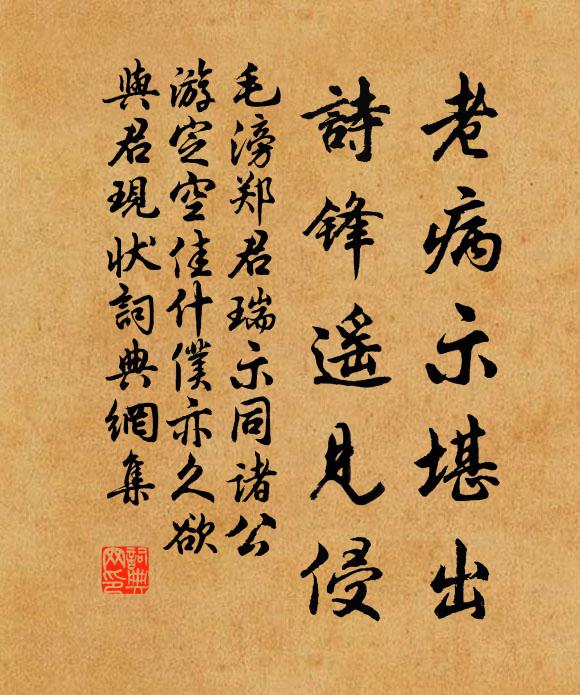 老病示堪出
詩鋒遥見侵
毛滂郑君瑞示同诸公
游定空佳什僕亦久欲
與君現状詞典網集
詞典网印